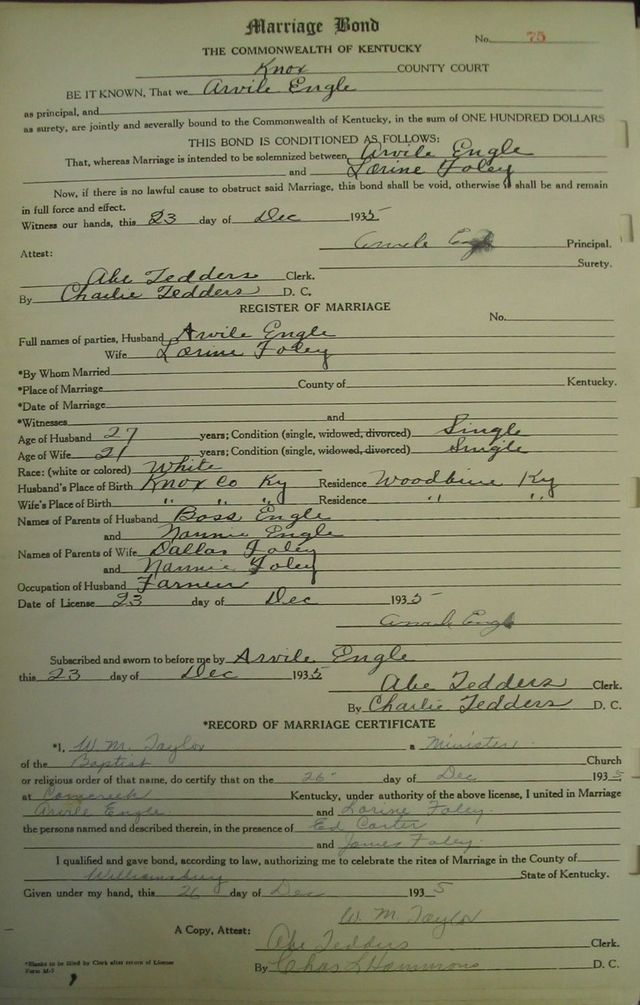 Marriage Bond
No. 75
THE COMMONWEALTH OF KENTUCKY
Knox COUNTY COURT
BE IT KNOWN, That we Arvile Engle
as principal, and
as surety, are jointly and severally bound to the Commonwealth of Kentucky, in the sum of ONE HUNDRED DOLLARS
THIS BOND IS CONDITIONED AS FOLLOWS:
That, whereas Marriage is intended to be solemnized between Arvile Engle
and Lorine Foley
Now, if there is no lawful cause to obstruct said Marriage, this bond shall be void, otherwise it shall be and remain
in full force and effect.
Witness our hands, this 23 day of Dec 1935
Arvile Engle Principal.
Attest:
Surety.
Abe Tedders Clerk.
By Charlie Tedders D. C.
REGISTER OF MARRIAGE
No.
Full names of parties, Husband Arvile Engle
Wife Lorine Foley
*By Whom Married
*Place of Marriage County of Kentucky.
*Date of Marriage
*Witnesses and
Age of Husband 27 years; Condition (single, widowed, divorced) Single
Age of Wife 21 years; Condition (single, widowed, divorced) Single
Race: (white or colored) White
Husband's Place of Birth Knox Co Ky Residence Woodbine Ky
Wife's Place of Birth " " " Residence " "
Names of Parents of Husband Boss Engle
and Nannie Engle
Names of Parents of Wife Dallas Foley
and Nannie Foley
Occupation of Husband Farmer
Date of License 23 day of Dec 1935
Arvile Engle
Subscribed and sworn to before me by Arvile Engle
this 23 day of Dec 1935
Abe Tedders Clerk.
By Charlie Tedders D. C.
*RECORD OF MARRIAGE CERTIFICATE
*I, W. M. Taylor a Minister
of the Baptist Church
or religious order of that name, do certify that on the 26 day of Dec 1935
at Kentucky, under authority of the above license, I united in Marriage
Arvile Engle and Lorine Foley.
the persons named and described therein, in the presence of Ed Carter
and James Foley
I qualified and gave bond, according to law, authorizing me to celebrate the rites of Marriage in the County of
Williamsburg State of Kentucky.
Given under my hand, this 26 day of Dec 1935
W. M. Taylor
A Copy, Attest:
Abe Tedders Clerk.
By Chas L Hammons D. C.
*Blanks to be filled by Clerk after return of License